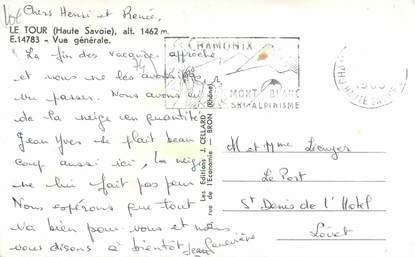 Chers Henri et Renée,
LE TOUR (Haute Savoie), alt. 1462 m.
E.14783 - Vue générale.
La fin des vacances approche
et nous ne les avons pas
vu passer. Nous avons eu
de la neige en quantité
Jean Yves se plait beau
coup aussi ici, la neige
ne lui fait pas peur
Nous espérons que tout
va bien pour vous et nous
vous disons à bientôt
Jean Geneviève
CHAMONIX
MONT BLANC
SKI-ALPINISME
Les Editions J. CELLARD
rue de l'Economie - BRON (Rhône)
M et Mme
Le Port
St Denis de l'Hotel
Loiret